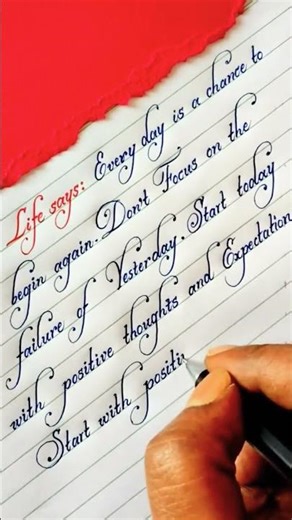 Life says: Every day is a chance to
begin again. Don't Focus on the
failure of Yesterday. Start today
with positive thoughts and Expectation
Start with positi